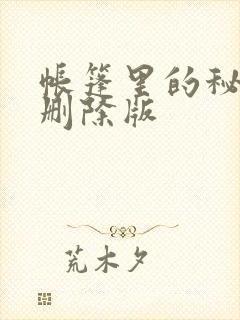 帐篷里的秘
删除版
荒木夕